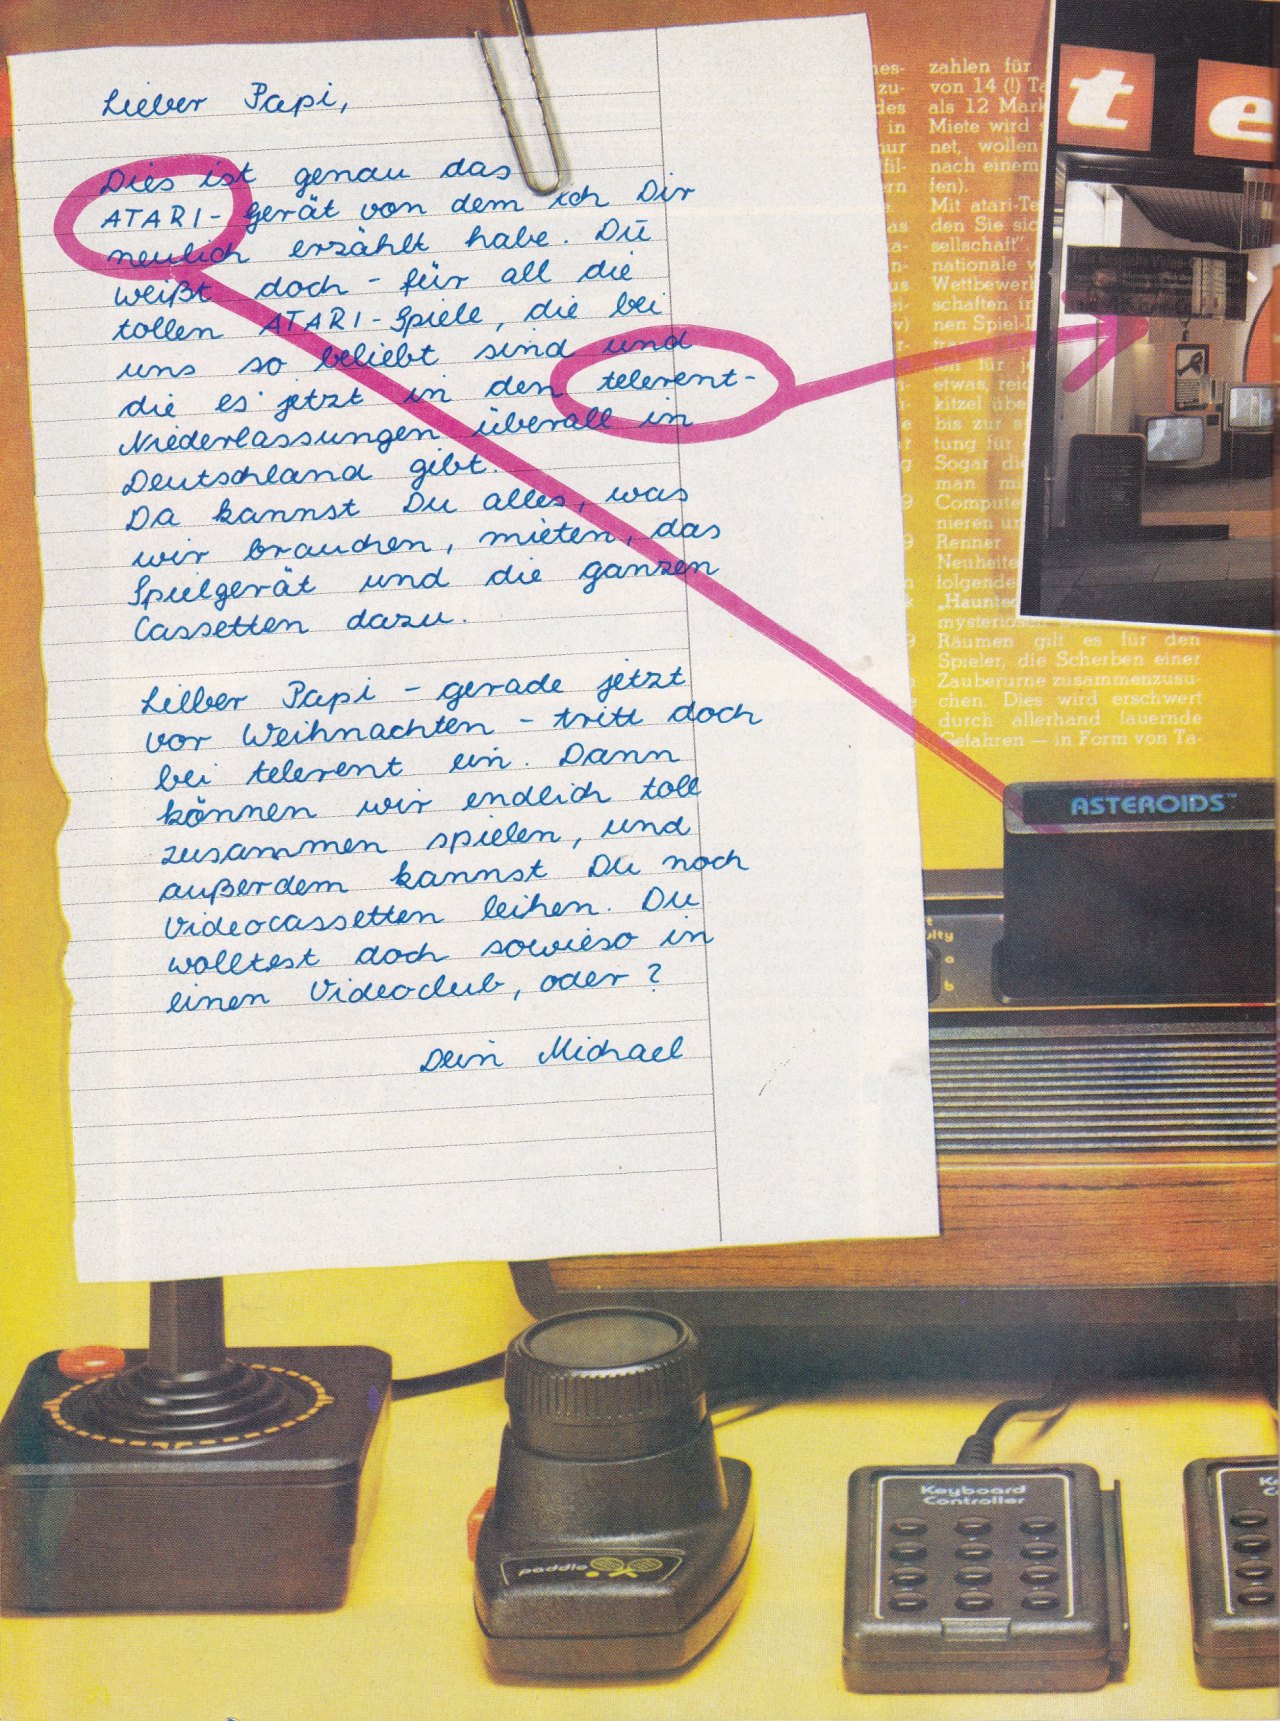 Lieber Papi,
Dies ist genau das
ATARI-Gerät von dem ich Dir
neulich erzählt habe. Du
weißt doch - für all die
tollen ATARI-Spiele, die bei
uns so beliebt sind und
die es jetzt in den telerent-
Niederlassungen überall in
Deutschland gibt.
Da kannst Du alles, was
wir brauchen, mieten, das
Spielgerät und die ganzen
Cassetten dazu.
Lieber Papi - gerade jetzt
vor Weihnachten - tritt doch
bei telerent ein. Dann
können wir endlich toll
zusammen spielen, und
außerdem kannst Du noch
Videocassetten leihen. Du
wolltest doch sowieso in
einen Videoclub, oder?
Dein Michael
zahlen für
von 14 (!)
als 12
Miete wird
net, wollen
nach einem
fen).
Mit
den Sie
sellschaft"
nationale
Wettbewerb
schaften
nen
für
etwas,
kitzel
bis zur
tung für
Sogar
man
Computer
nieren
Renner
Neuheite
folgende
„Haunted
mysteriösen
Räumen gilt es für den
Spieler, die Scherben einer
Zauberurne zusammenzusu-
chen. Dies wird erschwert
durch allerhand lauernde
Gefahren — in Form von Ta-
t e
ASTEROIDS™
a
b
paddle
Keyboard
Controller